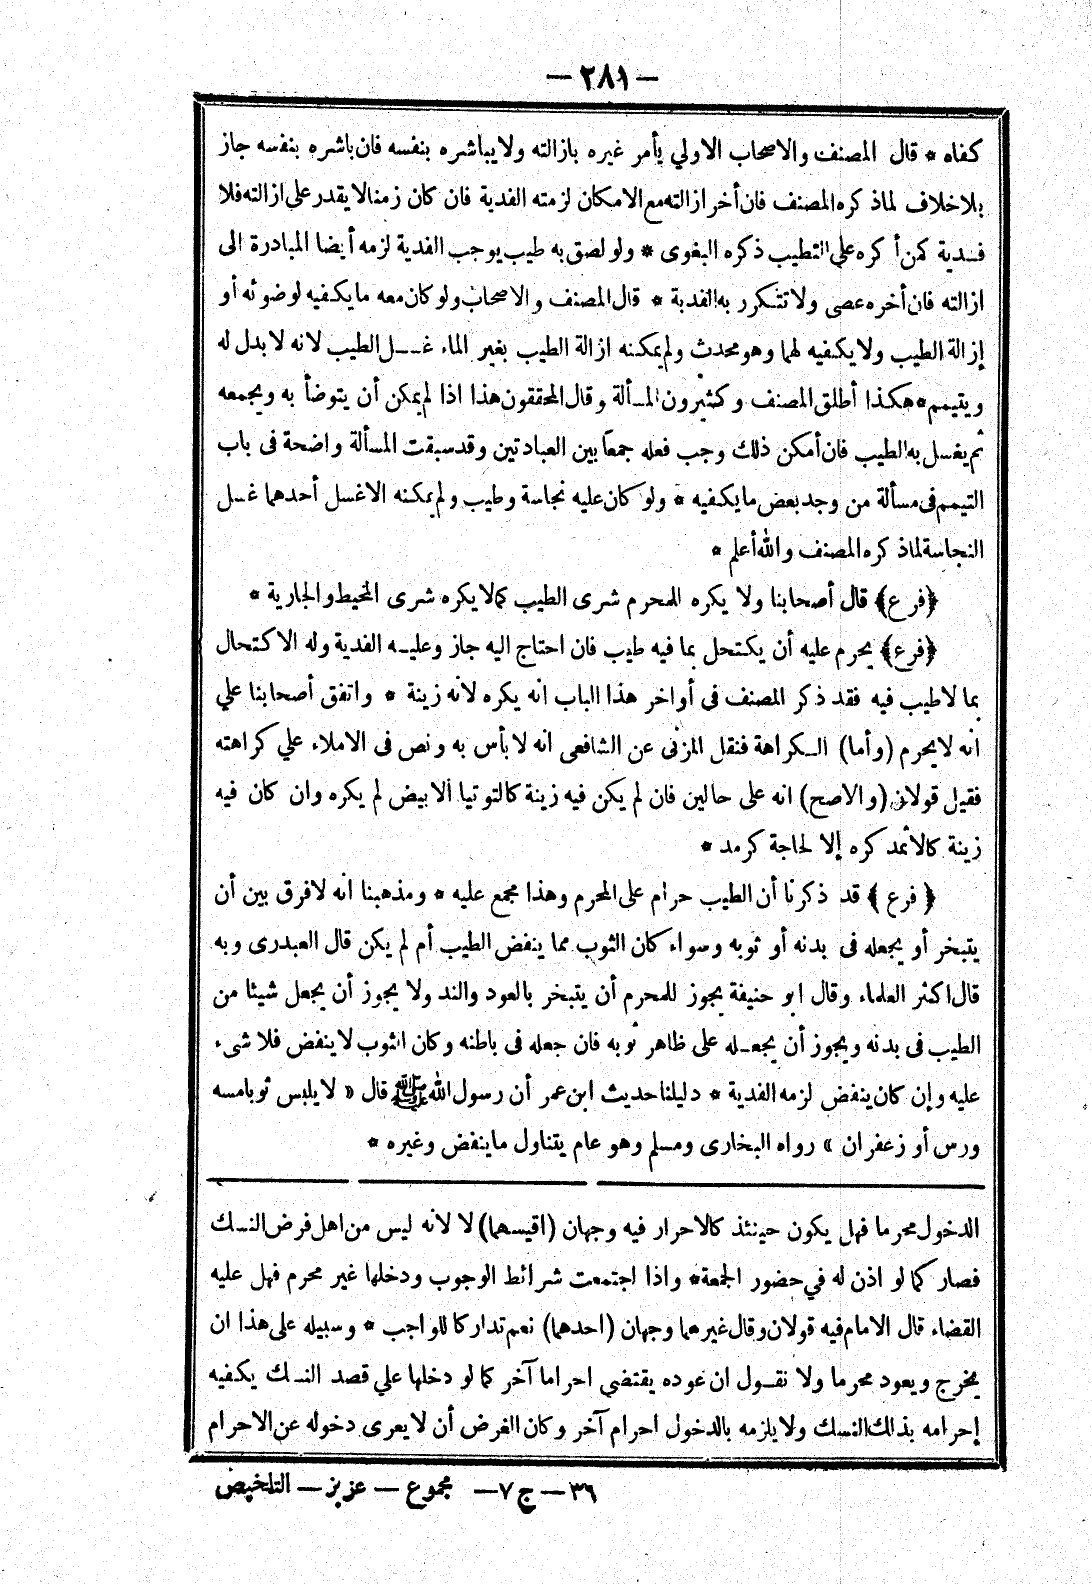 — ٢٨١ —
كفاه * قال المصنف والاصحاب الاولي يأمر غيره بازالته ولا يباشره بنفسه فان باشره بنفسه جاز
بلا خلاف لما ذكره المصنف فان أخر ازالته مع الامكان لزمته الفدية فان كان زمنا لا يقدر علي ازالته فلا
فدية كمن أكره علي التطيب ذكره البغوى * ولو لصق به طيب يوجب الفدية لزمه أيضا المبادرة الى
ازالته فان أخره عصى ولا تتكرر به الفدية * قال المصنف والاصحاب ولو كان معه ما يكفيه لوضوئه أو
إزالة الطيب ولا يكفيه لهما وهو محدث ولم يمكنه ازالة الطيب بغير الماء غسل الطيب لانه لا بدل له
ويتيمم * هكذا أطلق المصنف وكثيرون المسألة وقال المحققون هذا اذا لم يمكن أن يتوضأ به ويجمعه
ثم يغسل به الطيب فان أمكن ذلك وجب فعله جمعا بين العبادتين وقد سبقت المسألة واضحة فى باب
التيمم فى مسألة من وجد بعض ما يكفيه * ولو كان عليه نجاسة وطيب ولم يمكنه الا غسل أحدهما غسل
النجاسة لما ذكره المصنف والله أعلم *
﴿فرع﴾ قال أصحابنا ولا يكره للمحرم شرى الطيب كما لا يكره شرى المخيط والجارية *
﴿فرع﴾ يحرم عليه أن يكتحل بما فيه طيب فان احتاج اليه جاز وعليه الفدية وله الاكتحال
بما لا طيب فيه فقد ذكر المصنف فى أواخر هذا الباب انه يكره لانه زينة * واتفق أصحابنا علي
انه لا يحرم (وأما) الكراهة فنقل المزنى عن الشافعى انه لا بأس به ونص فى الاملاء علي كراهته
فقيل قولان (والاصح) انه على حالين فان لم يكن فيه زينة كالتوتيا الابيض لم يكره وان كان فيه
زينة كالاثمد كره إلا لحاجة كرمد *
﴿فرع﴾ قد ذكرنا أن الطيب حرام على المحرم وهذا مجمع عليه * ومذهبنا انه لا فرق بين أن
يتبخر أو يجعله فى بدنه أو ثوبه وسواء كان الثوب مما ينفض الطيب أم لم يكن قال العبدرى وبه
قال اكثر العلماء وقال ابو حنيفة يجوز للمحرم أن يتبخر بالعود والند ولا يجوز أن يجعل شيئا من
الطيب فى بدنه ويجوز أن يجعله على ظاهر ثوبه فان جعله فى باطنه وكان الثوب لا ينفض فلا شىء
عليه وإن كان ينفض لزمه الفدية * دليلنا حديث ابن عمر أن رسول الله ﷺ قال « لا يلبس ثوبا مسه
ورس أو زعفران » رواه البخارى ومسلم وهو عام يتناول ما ينفض وغيره *
الدخول محرما فهل يكون حينئذ كالاحرار فيه وجهان (اقيسهما) لا لانه ليس من اهل فرض النسك
فصار كما لو اذن له في حضور الجمعة * واذا اجتمعت شرائط الوجوب ودخلها غير محرم فهل عليه
القضاء قال الامام فيه قولان وقال غيرهما وجهان (احدهما) نعم تداركا للواجب * وسبيله على هذا ان
يخرج ويعود محرما ولا نقول ان عوده يقتضى احراما آخر كما لو دخلها علي قصد النسك يكفيه
إحرامه بذلك النسك ولا يلزمه بالدخول احرام آخر وكان الغرض أن لا يعرى دخوله عن الاحرام
٣٦ — ج ٧ — مجموع — عزيز — التلخيص